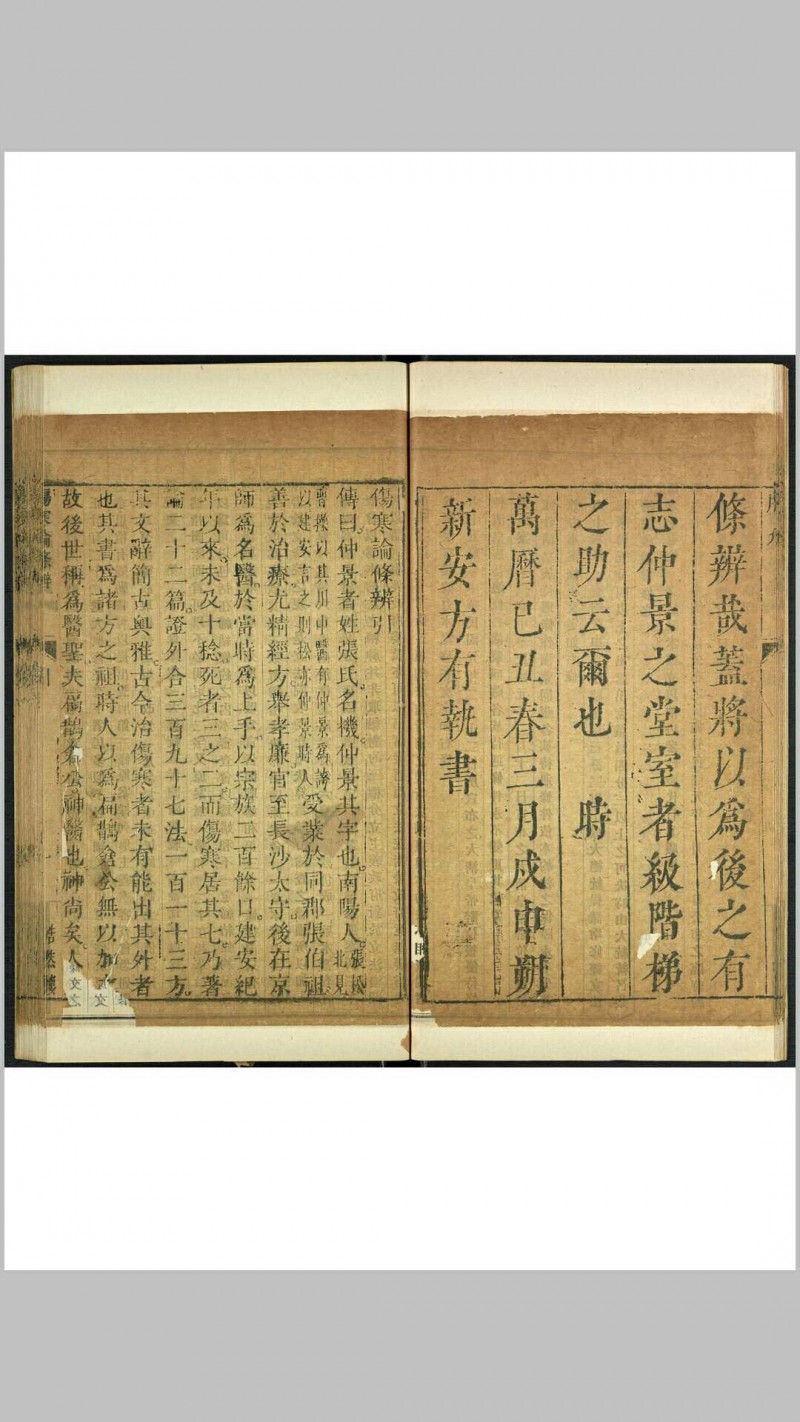 條辨哉蓋將以爲後之有
志仲景之堂室者級階梯
之助云爾也 時
萬曆己丑春三月戍申朔
新安方有執書
傷寒論條辨引
傳曰仲景者姓張氏名機仲景其字也南陽人張松北見
曹操以其川中醫有仲景爲誇以建安言之則松亦仲景時人受業於同郡張伯祖
善於治療尤精經方舉孝廉官至長沙太守後在京
師爲名醫於當時爲上手以宗族二百餘口建安紀
年以來未及十稔死者三之二而傷寒居其七乃著
論二十二篇證外合三百九十七法一百一十三方
其文辭簡古奧雅古今治傷寒者未有能出其外者
也其書爲諸方之祖時人以爲扁鵲倉公無以加
故後世稱爲醫聖夫扁鵲倉公神醫也神尚矣人
傷寒論條辨 引 浩然樓